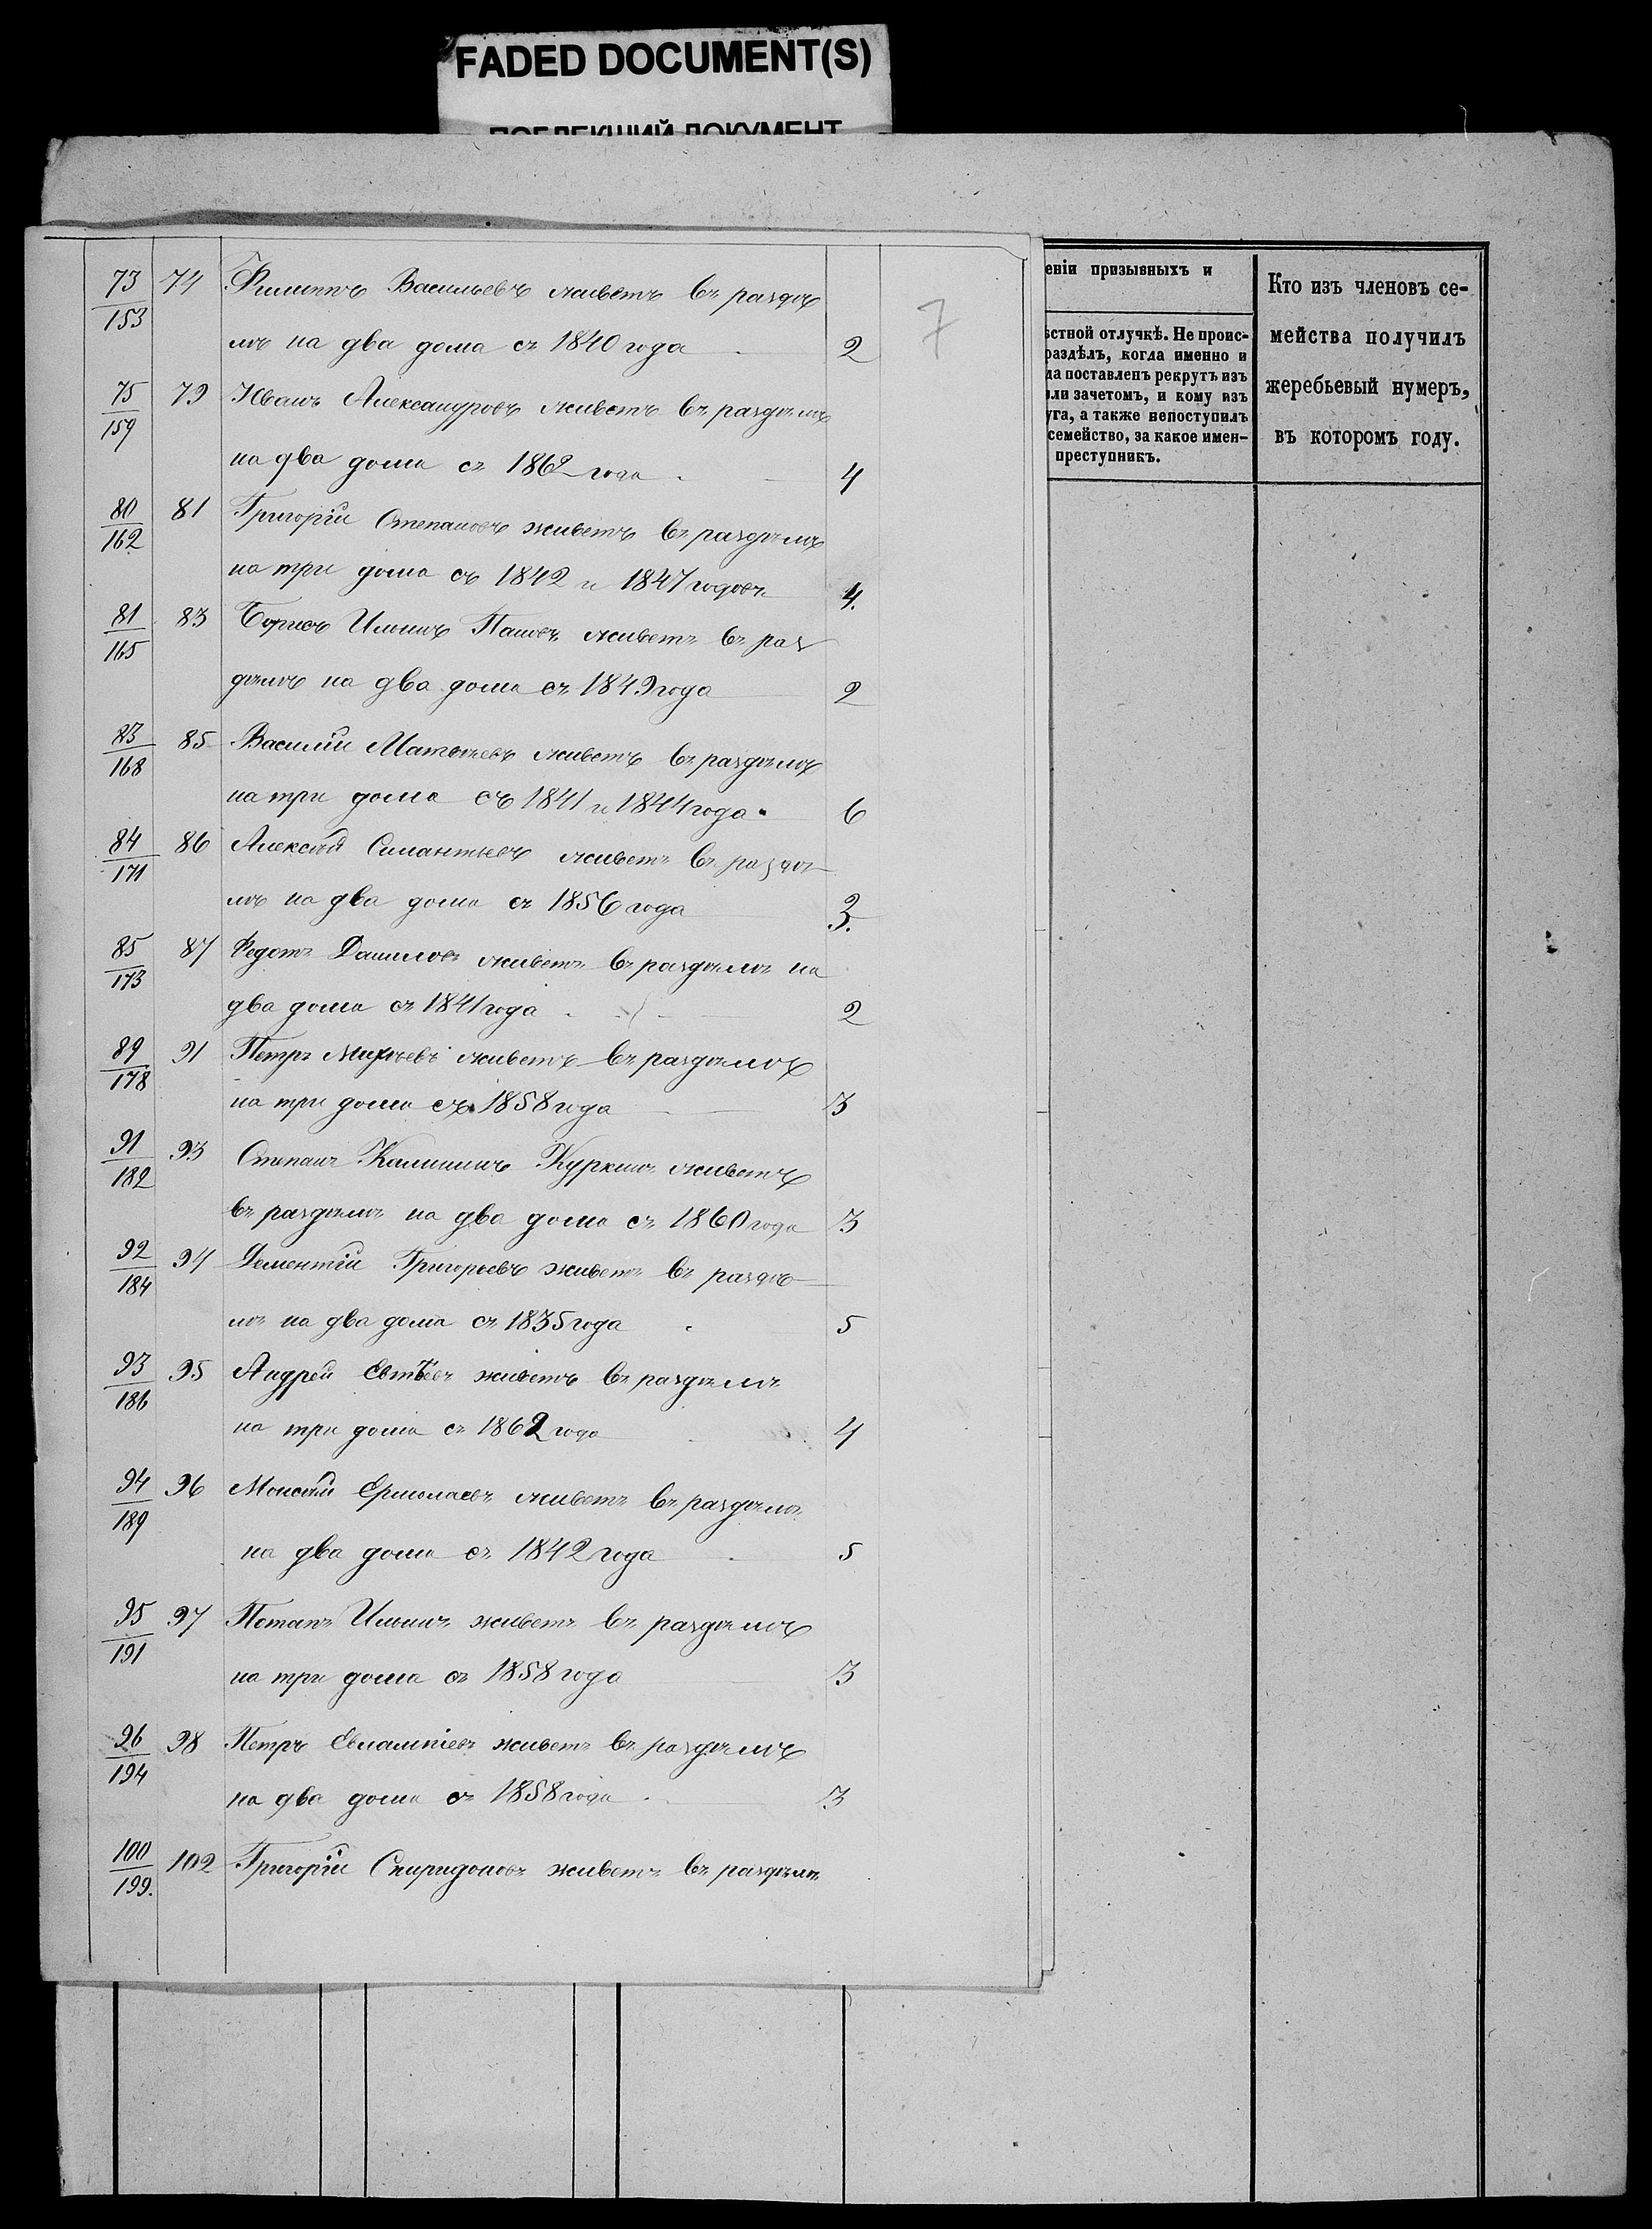 FADED DOCUMENT(S)
ПОБЛЕКШИЙ ДОКУМЕНТ
7
73/153 74 Филиппъ Васильевъ живетъ въ раздѣ
лѣ на два дома съ 1840 года 2
75/159 79 Иванъ Александровъ живетъ въ раздѣлѣ
на два дома съ 1862 года 4
80/162 81 Григорій Степановъ живетъ въ раздѣлѣ
на три дома съ 1842 и 1847 годовъ 4.
81/165 83 Борисъ Ильинъ Пановъ живетъ въ раз
дѣлѣ на два дома съ 1849 года 2
83/168 85 Василій Матвѣевъ живетъ въ раздѣлѣ
на три дома съ 1841 и 1844 года 6
84/171 86 Алексѣй Силантьевъ живетъ въ раздѣ
лѣ на два дома съ 1856 года 3.
85/173 87 Федотъ Даниловъ живетъ въ раздѣлѣ на
два дома съ 1841 года 2
89/178 91 Петръ Михѣевъ живетъ въ раздѣлѣ
на три дома съ 1858 года 3
91/182 93 Степанъ Калининъ Куркинъ живетъ
въ раздѣлѣ на два дома съ 1860 года 3
92/184 94 Дементій Григорьевъ живетъ въ раздѣ
лѣ на два дома съ 1835 года 5
93/186 95 Андрей Евтѣевъ живетъ въ раздѣлѣ
на три дома съ 1862 года 4
94/189 96 Моисѣй Ермолаевъ живетъ въ раздѣлѣ
на два дома съ 1842 года 5
95/191 97 Потапъ Ильинъ живетъ въ раздѣлѣ
на три дома съ 1858 года 3
96/194 98 Петръ Евлампіевъ живетъ въ раздѣлѣ
на два дома съ 1858 года 3
100/199. 102 Григорій Спиридоновъ живетъ въ раздѣлѣ
еніи призывныхъ и
ѣстной отлучкѣ. Не проис-
раздѣлъ, когда именно и
да поставленъ рекрутъ изъ
или зачетомъ, и кому изъ
уга, а также непоступилъ
семейство, за какое имен-
преступникъ.
Кто изъ членовъ се-
мейства получилъ
жеребьевый нумеръ,
въ которомъ году.